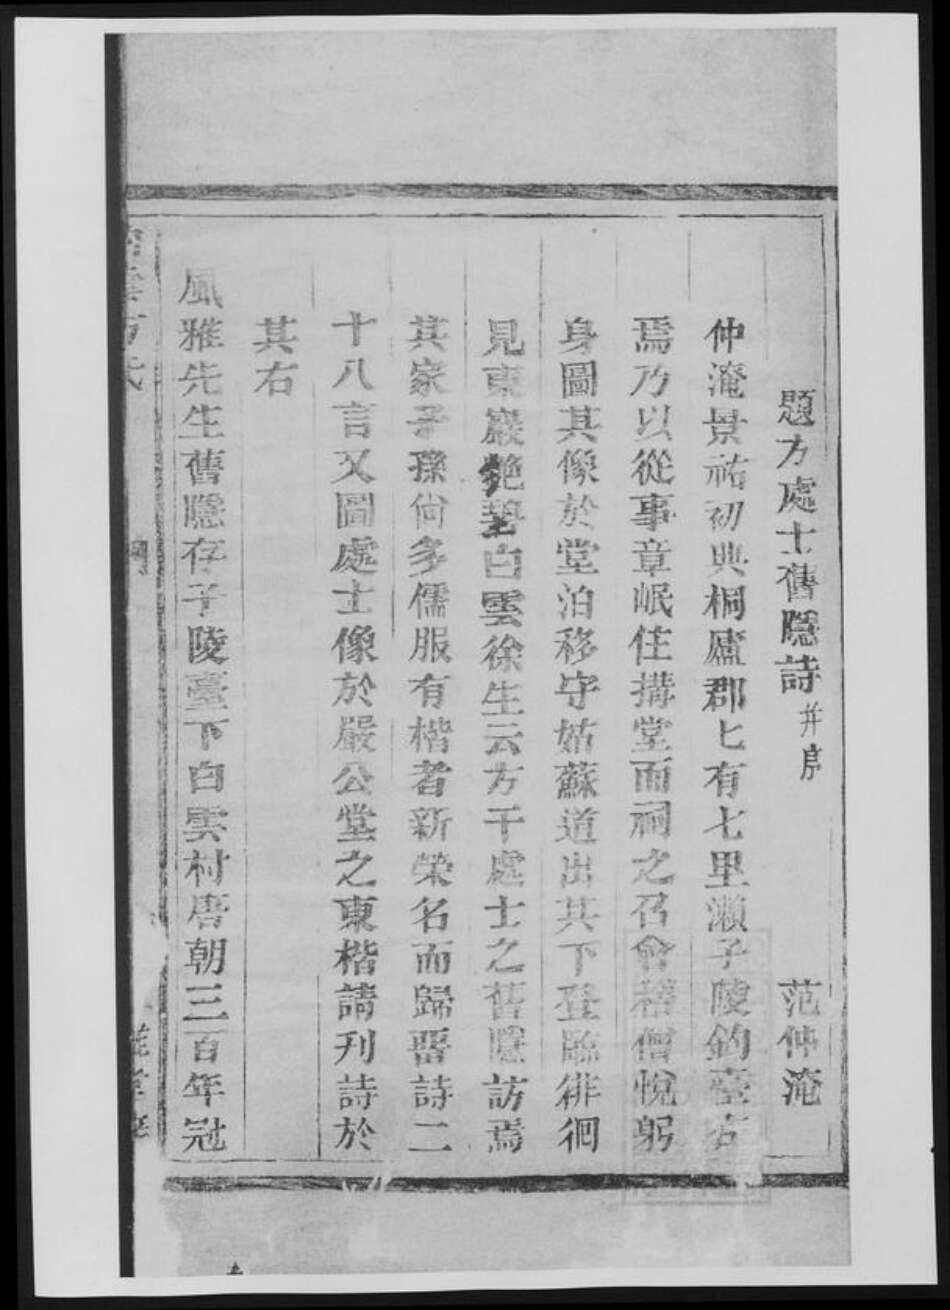 題方處士舊隱詩 并序 范仲淹
仲淹景祐初典桐廬郡七有七里瀬子陵釣臺在
焉乃以從事章岷往搆堂而祠之召會稽僧悅躬
身圖其像於堂洎移守姑蘇道出其下登臨徘徊
見東巖絶碧白雲徐生云方干處士之舊隱訪焉
其家子孫尙多儒服有楷者新榮名而歸畱詩二
十八言又圖處士像於嚴公堂之東楷請刋詩於
其右
風雅先生舊隱存子陵臺下白雲村唐朝三百年冠